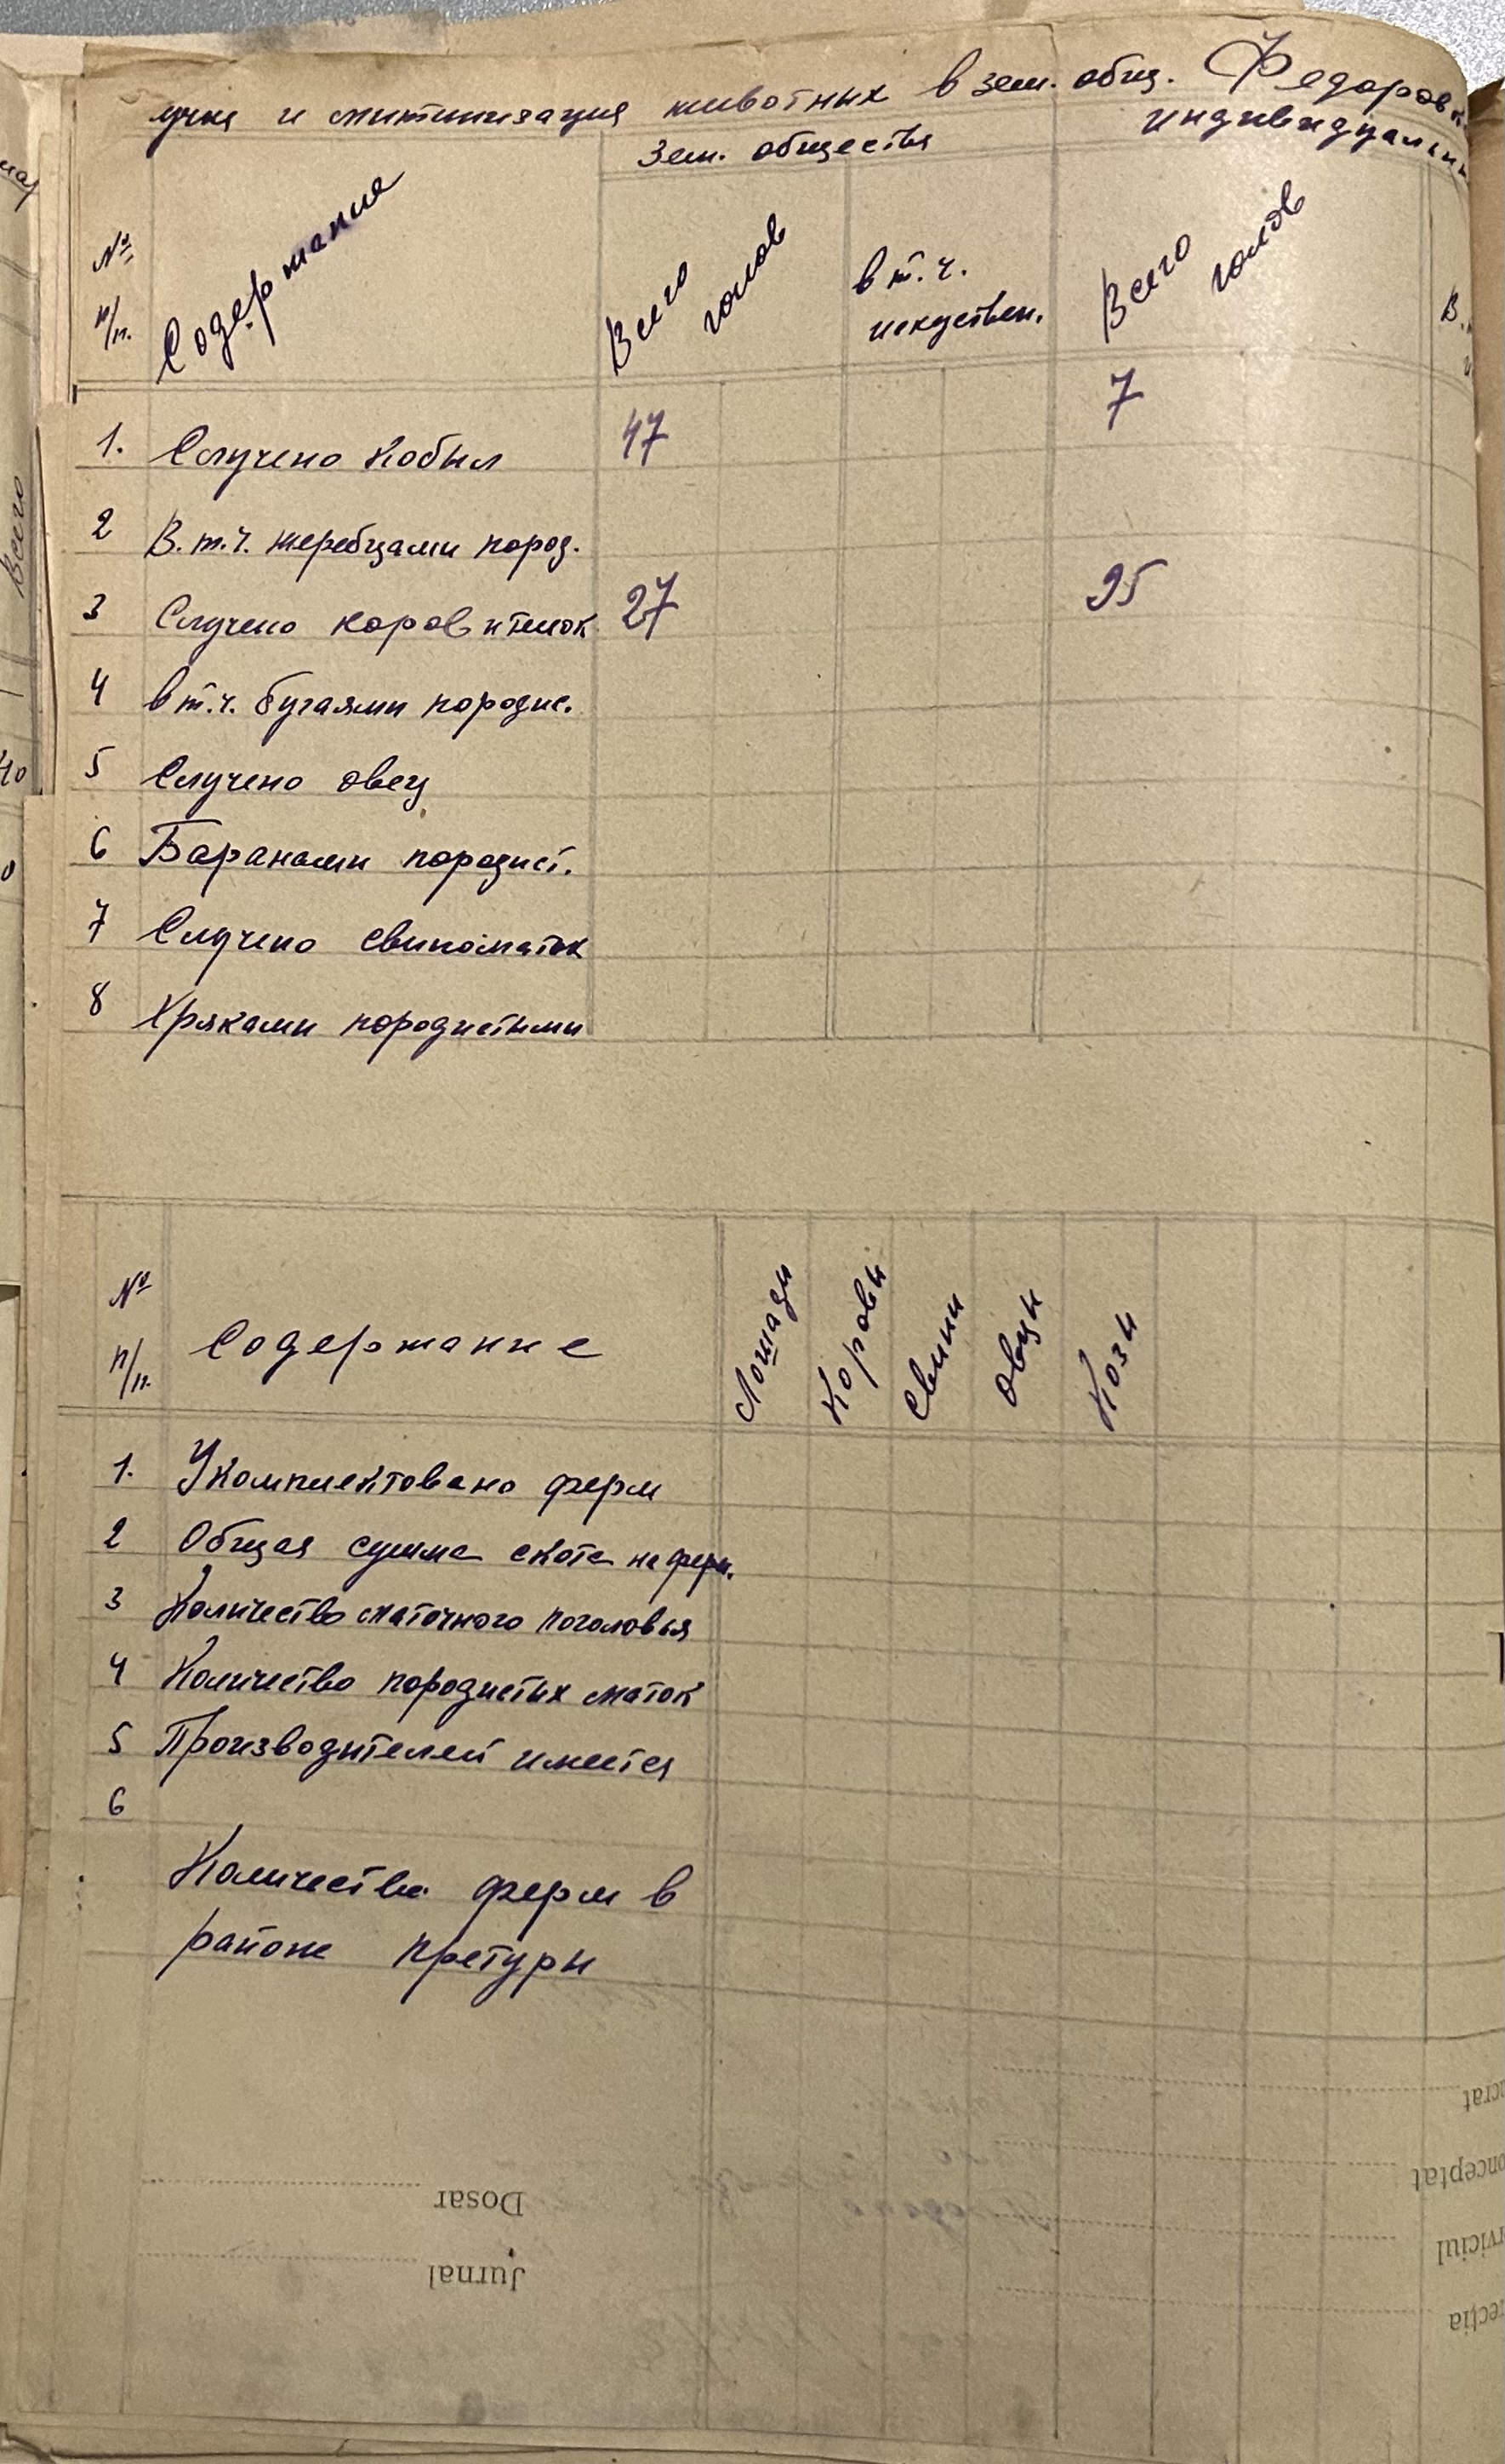 учка и митинизация животных в зем. общ. Федоровк
Зем. общества
индивидуальн
№ п/п.
Содержание
Всего голов
в т.ч. искуствен.
Всего голов
В.
1. Случено кобыл 47 7
2 В.т.ч. жеребцами пород.
3 Случено коров и телок 27 95
4 в т.ч. бугаями породис.
5 Случено овец
6 Баранами породист.
7 Случено свиноматок
8 Хряками породистыми
№ п/п.
Содержание
Лошади
Коровы
Свиньи
Овцы
Козы
1. Укомплектовано ферм
2 Общая сумма скота на ферм.
3 Количество маточного поголовья
4 Количество породистых маток
5 Производителей имеется
6
Количество ферм в
районе претуры
Всего
40
0
Jurnal
Dosar
ecția
rviciul
onceptat
crat